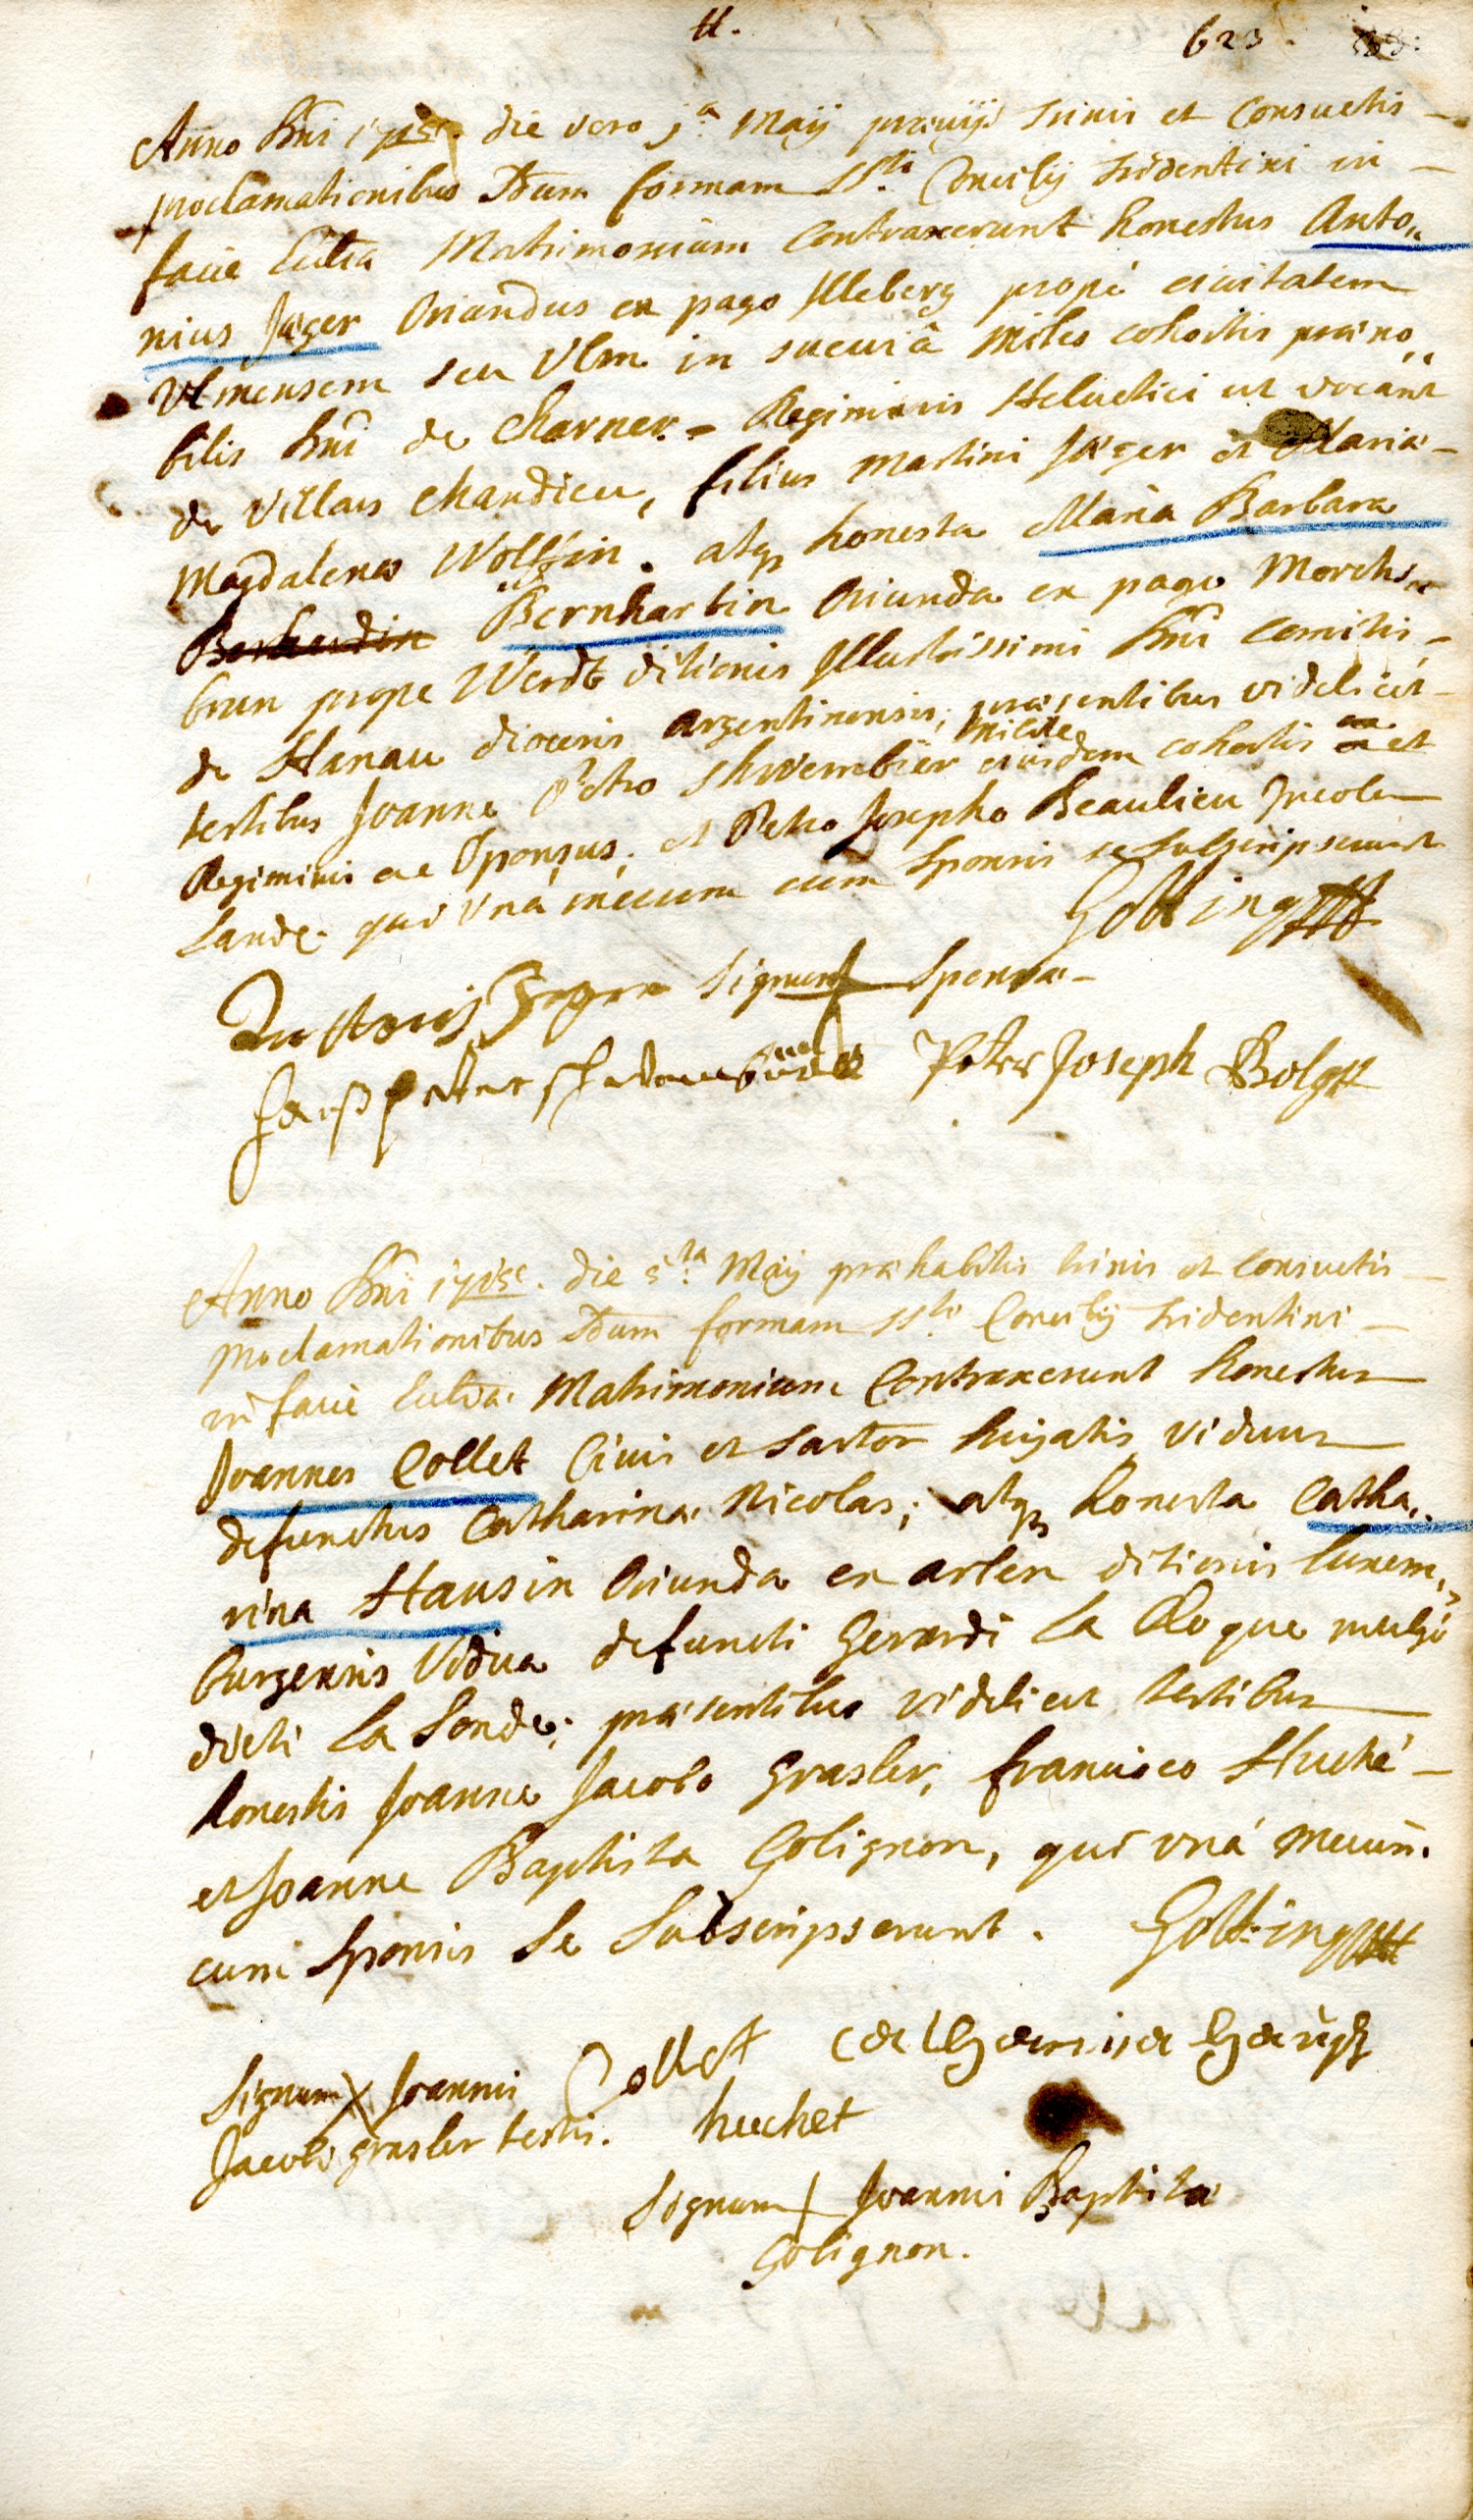 623.
Anno Dñi die vero 1ª Maij præviis trinis et Consuetis
proclamationibus Sdum formam SSti Concilij tridentini in
facie Ecclæ Matrimonium Contraxerunt honestus Anto„
nius Jæger Oriundus ex pago Illeberg propè civitatem
Ulmensem seu Ulm in sueviâ miles cohortis præno„
bilis Dñi de Charner Regiminis Helvetici ut vocant
de Villars Chandieu, filius Martini Jæger et Mariæ
Magdalenæ Wolffin. atq honesta Maria Barbara
Berhardin Bernhartin Oriunda ex pago Morchs„
brun prope Werdt ditionis Illustrissimi Dñi Comitis
de Hanau diocesis Argentinensis; præsentibus videlicet
testibus Joanne Petro Shwembier milite eiusdem cohortis et
Regiminis ac Sponsus; et Petro Josepho Beaulieu Incola
Landæ. qui unà mecum cum Sponsis se subscripserunt
Gotting
Signum Sponsæ
Peter Joseph
Anno Dñi die 5ta Maij præhabitis trinis et Consuetis
proclamationibus Sdum formam SSti Concilij tridentini
in facie Ecclæ Matrimonium Contraxerunt honestus
Joannes Collet Civis et Sartor huiatis viduus
defunctæ Catharinæ Nicolas; atq honesta Catha„
rina Hausin Oriunda ex arlen ditionis Luxem„
burgensis Vidua defuncti Gerardi La Cloque vulgò
dicti La Londe; præsentibus videlicet testibus
honestis Joanne Jacobo Grasler, francisco Huché
et Joanne Baptista Golignon, qui unà mecum
cum Sponsis se Subscripserunt. Gotting
Signum X Joannis Collet Catharina
Jacob grasler testis. huchet
Signum Joannis Baptistæ
Golignon.